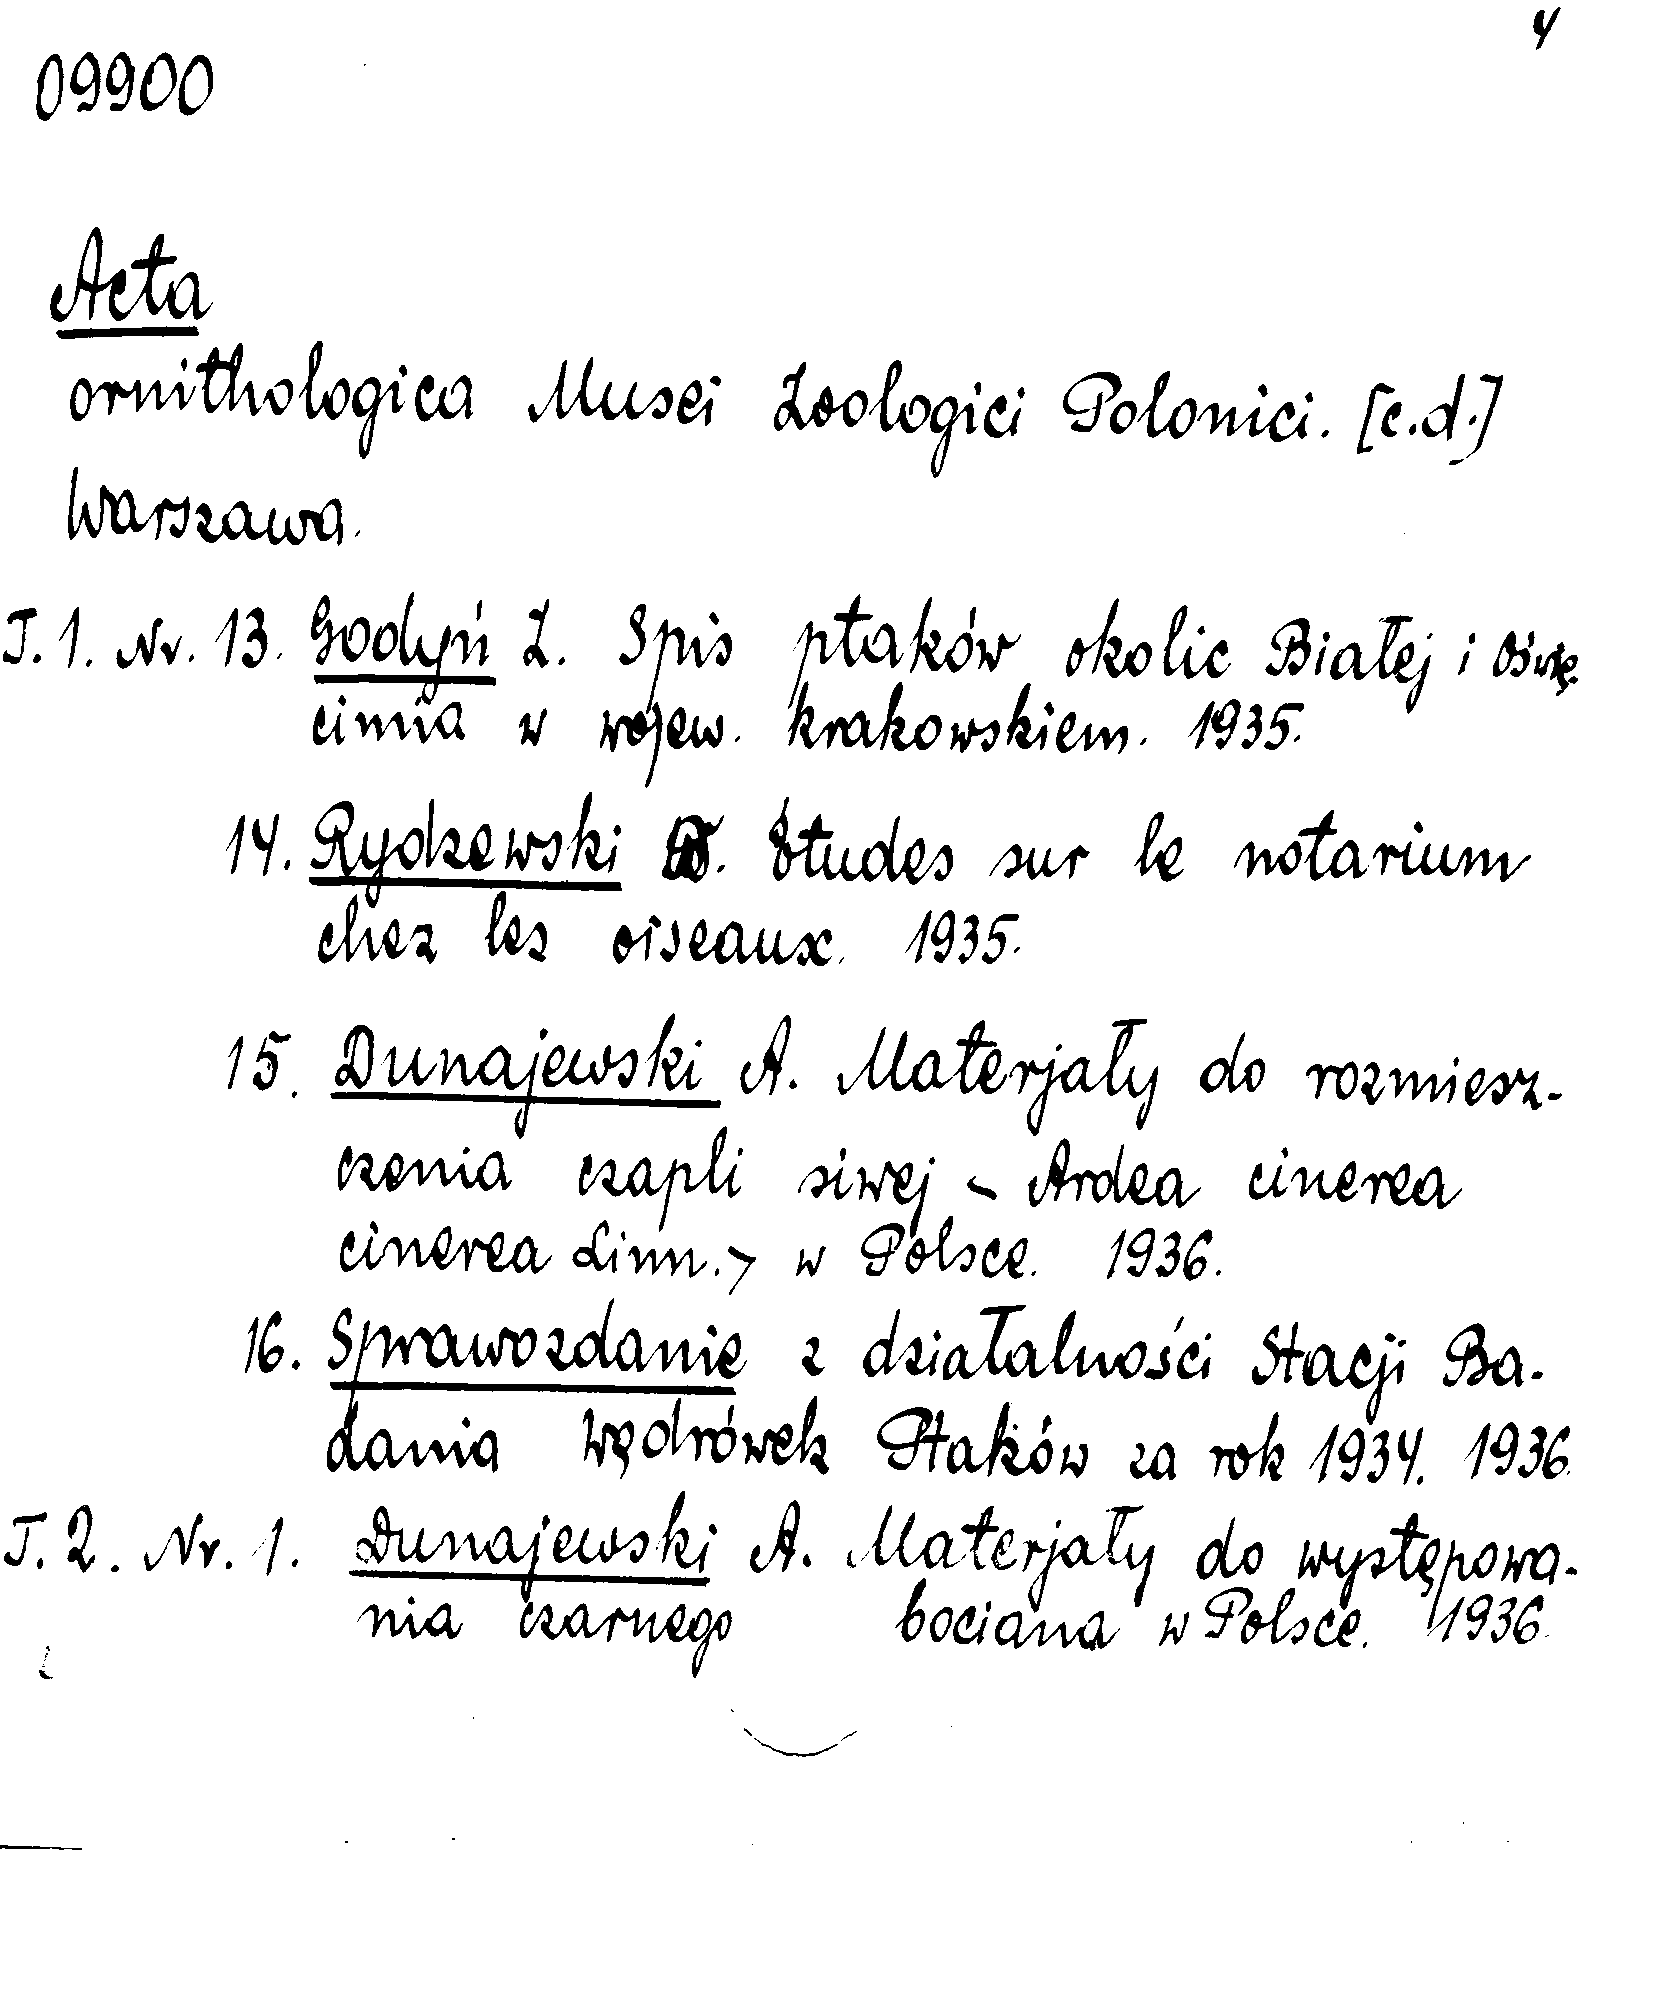 4
09900
Acta
ornithologica Musei Zoologici Polonici. [c.d.]
Warszawa.
T. 1. Nr. 13. Godyń Z. Spis ptaków okolic Białej i Oświę-
cimia w wojew. krakowskiem. 1935.
14. Rydzewski. Études sur le notarium
chez les oiseaux. 1935.
15. Dunajewski A. Materjały do rozmiesz-
czenia czapli siwej - Ardea cinerea
cinerea Linn. - w Polsce. 1936.
16. Sprawozdanie z działalności Stacji Ba-
dania Wędrówek Ptaków za rok 1934. 1936.
T. 2. Nr. 1. Dunajewski A. Materjały do występowa-
nia czarnego bociana w Polsce. 1936.